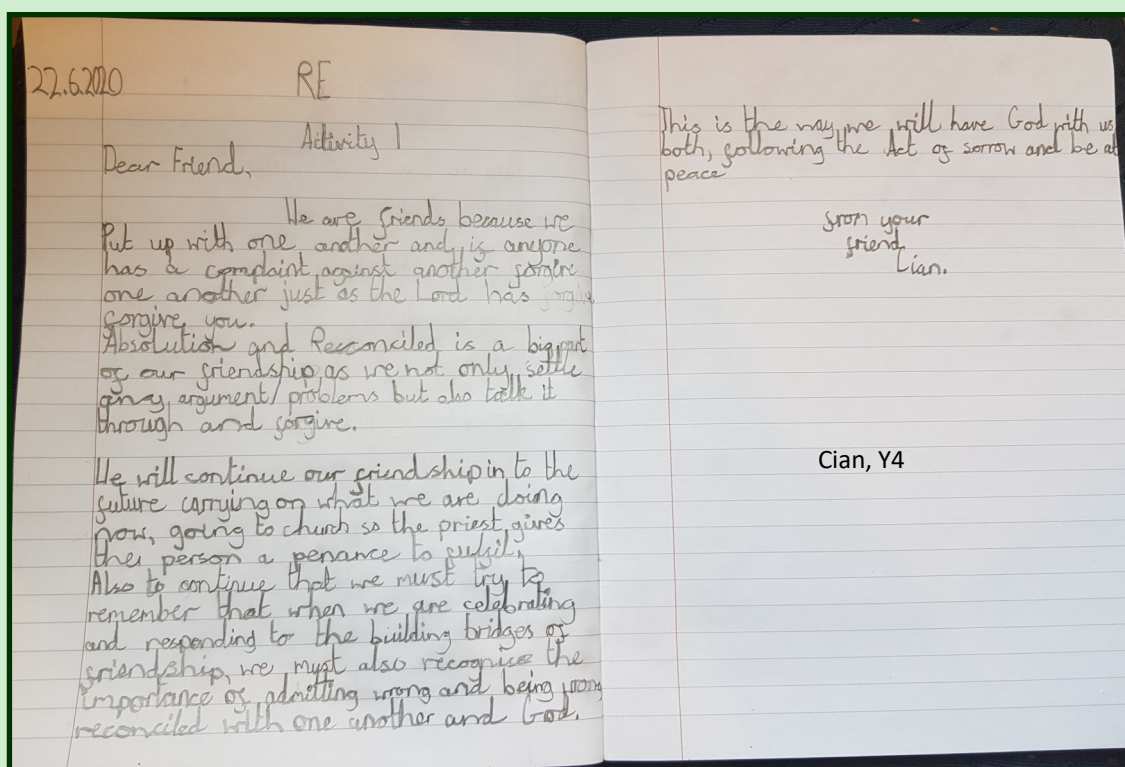 22.6.2020
RE
Activity 1
Dear Friend,
We are friends because we
Put up with one another and if anyone
has a complaint against another forgive
one another just as the Lord has
forgive you.
Absolution and Recconciled is a big part
of our friendship as we not only settle
any argument/problems but also talk it
through and forgive.
We will continue our friendship in to the
future carrying on what we are doing
now, going to church so the priest gives
the person a penance to fulfil.
Also to continue that we must try to
remember that when we are celebrating
and responding to the building bridges of
friendship, we must also recognise the
importance of admitting wrong and being
reconciled with one another and God.
This is the way we will have God with us
both, following the Act of sorrow and be at
peace
from your
friend
Cian.
Cian, Y4